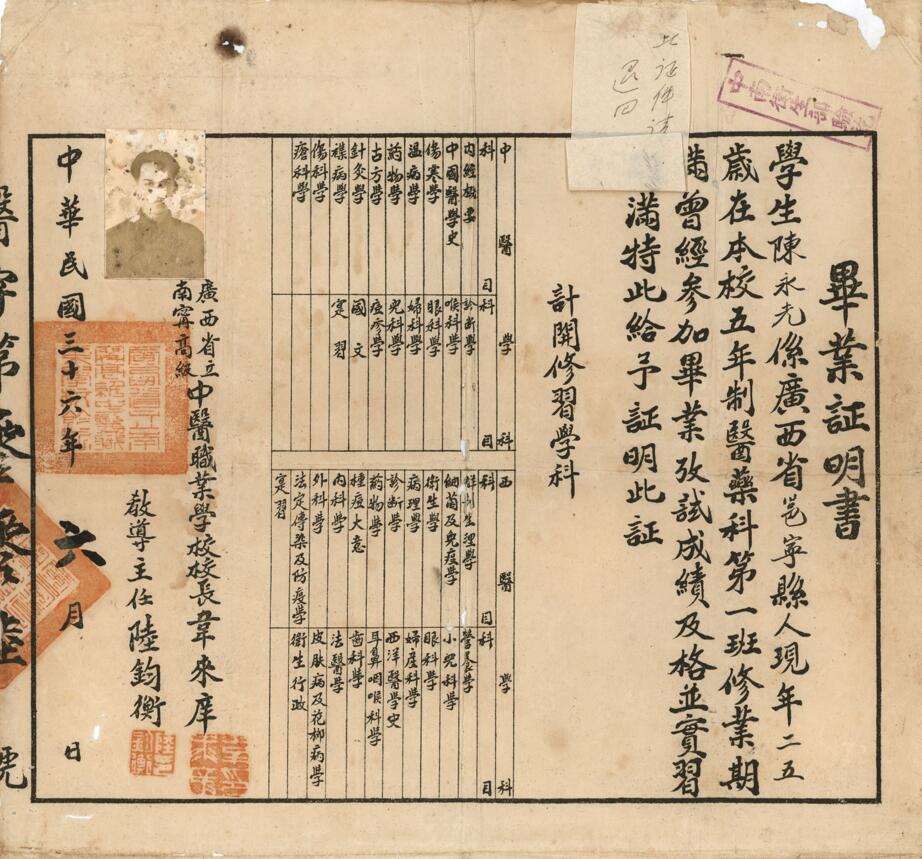 畢業証明書
學生陳永光係廣西省邕寧縣人現年二五
歲在本校五年制醫藥科第一班修業期
滿曾經參加畢業攷試成績及格並實習
滿特此給予証明此証
計開修習學科
中醫學科
科目
內經概要
中國醫學史
傷寒學
溫病學
药物學
古方學
針灸學
雜病學
傷科學
瘡科學
科目
診斷學
喉科學
眼科學
婦科學
兒科學
痘疹學
國文
寔習
西醫學科
科目
解剖生理學
細菌及免疫學
衛生學
病理學
診斷學
药物學
種痘大意
內科學
外科學
法定傳染及防疫學
寔習
科目
營養學
小兒科學
眼科學
婦產科學
西洋醫學史
耳鼻咽喉科學
齒科學
法醫學
皮膚病及花柳病學
衛生行政
廣西省立
南寧高級
中醫職業學校校長韋來庠
教導主任陸鈞衡
中華民國三十六年六月 日
此証件請
退回